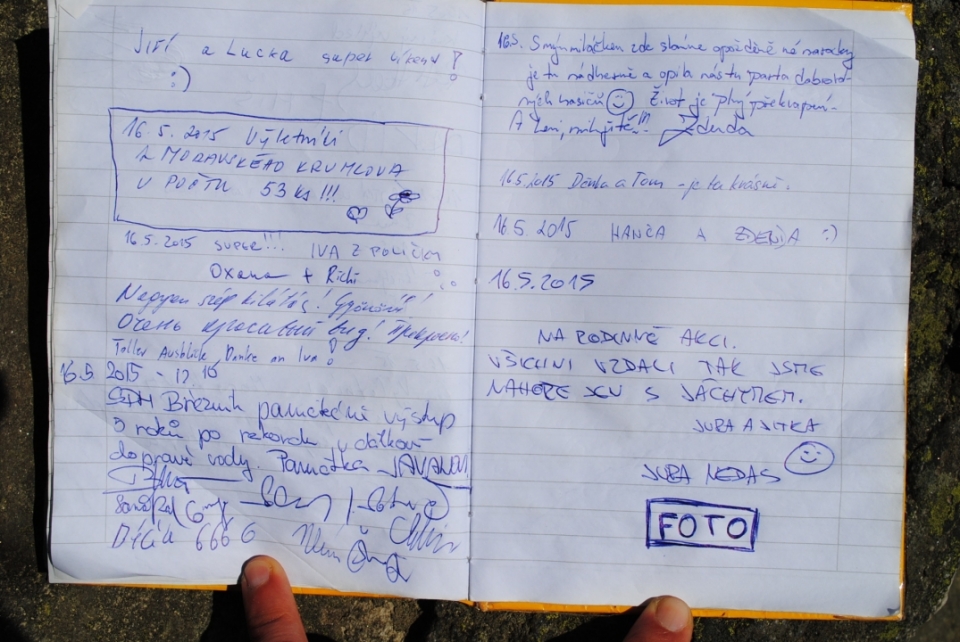 Jiří a Lucka super víkend!
:)
16.5.2015 Výletníci
Z MORAVSKÉHO KRUMLOVA
V POČTU 53 ks!!!
16.5.2015 SUPER!!! IVA Z POLIČKY
Oxana + Richi
Nagyon szép kilátás! Gyönyörű!
Очень красивый вид! Прекрасно!
Toller Ausblick, Danke an Iva!
16.5.2015 - 17.10
SDH Březník památeční výstup
3 roků po rekordu v dálkové
dopravě vody. Památka
6666
16.5. S mým miláčkem zde slavíme opožděně narozky
je tu nádherně a opila nás tu parta dobrovol-
ných hasičů Život je plný překvapení
A ženy, milujte!!! Zdenda
16.5.2015 Denka a Tom - je to krásné.
16.5.2015 HANČA A ZDENDA :)
16.5.2015
NA RODINNÉ AKCI.
VŠICHNI VZDALI TAK JSME
NAHOŘE JEN S JÁCHYMEM.
JURA A JITKA
JURA NEDAS
FOTO